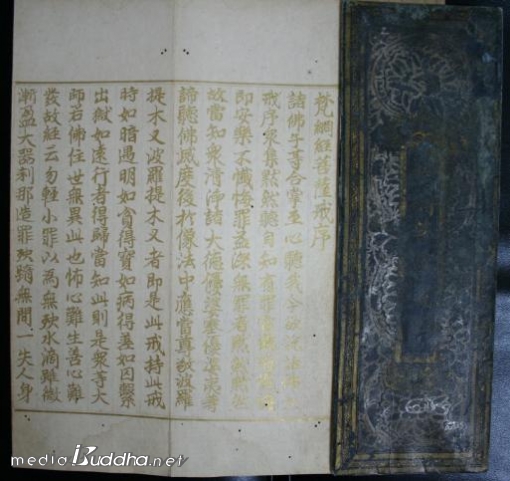 梵網經菩薩戒序
諸佛子等合掌至心聽我今欲說諸佛大
戒序衆集黙然聽自知有罪當懺悔懺悔
即安樂不懺悔罪益深無罪者黙然黙然
故當知衆清淨諸大德優婆塞優婆夷等
諦聽佛滅度後於像法中應當尊敬波羅
提木叉波羅提木叉者即是此戒持此戒
時如暗遇明如貧得寶如病得差如囚繫
出獄如遠行者得歸當知此則是衆等大
師若佛住世無異此也怖心難生善心難
發故經云勿輕小罪以爲無殃水滴雖微
漸盈大器刹那造罪殃墮無間一失人身
media.Buddha.net